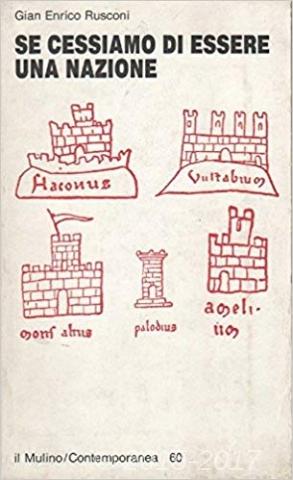 Gian Enrico Rusconi
SE CESSIAMO DI ESSERE
UNA NAZIONE
Flaconus
Vultabium
monſ altus
palodius
ameli-
um
il Mulino/Contemporanea 60
2017